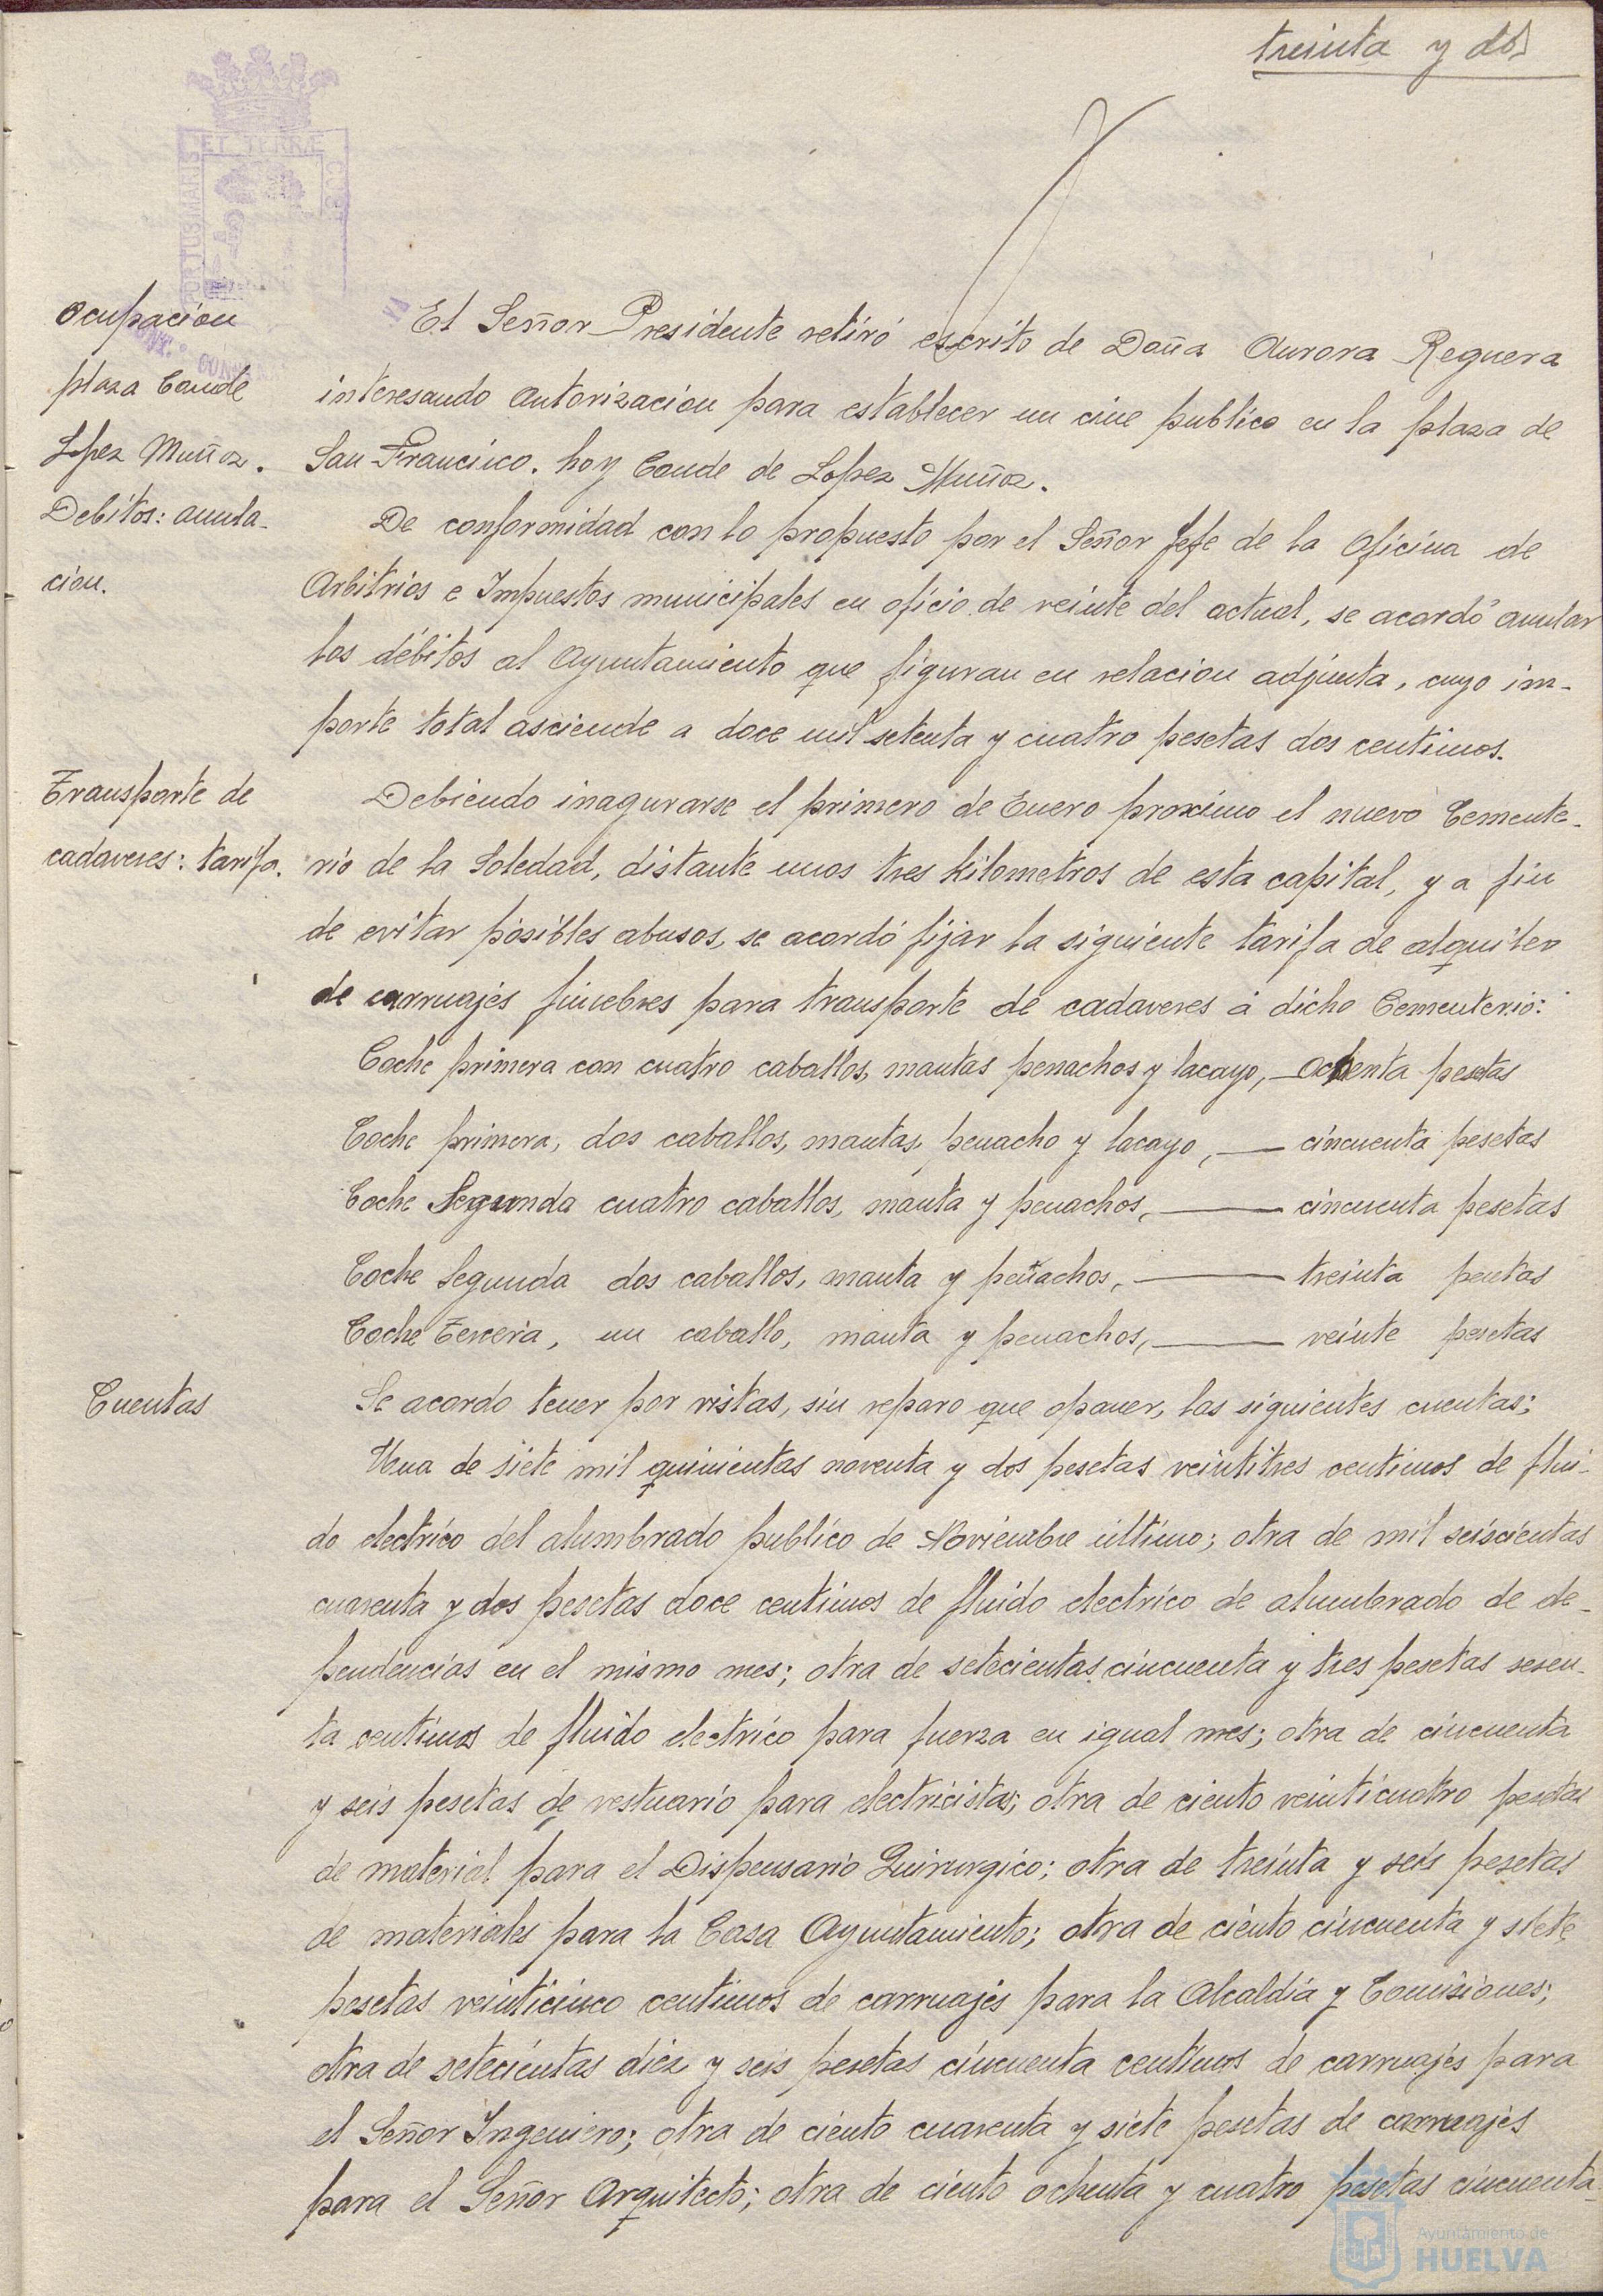 treinta y dos
ET TERRÆ
PORTUS MARIS
CUST
Ocupacion
plaza Conde
Lopez Muñoz.
El Señor Presidente retiró escrito de Doña Aurora Reguera
interesando autorizacion para establecer un cine publico en la plaza de
San Francisco. hoy Conde de Lopez Muñoz.
Debitos: anula-
cion.
De conformidad con lo propuesto por el Señor Jefe de la Oficina de
Arbitrios e Impuestos municipales en oficio de veinte del actual, se acordó anular
los débitos al Ayuntamiento que figuran en relacion adjunta, cuyo im-
porte total asciende a doce mil setenta y cuatro pesetas dos centimos.
Transporte de
cadaveres: tarifa.
Debiendo inagurarse el primero de Enero proximo el nuevo Cemente-
rio de la Soledad, distante unos tres kilometros de esta capital, y a fin
de evitar posibles abusos, se acordó fijar la siguiente tarifa de alquiler
de carruajes fúnebres para transporte de cadaveres á dicho Cementerio:
Coche primera con cuatro caballos, mantas penachos y lacayo, — ochenta pesetas
Coche primera, dos caballos, mantas, penacho y lacayo, — cincuenta pesetas
Coche Segunda cuatro caballos, manta y penachos, — cincuenta pesetas
Coche Segunda dos caballos, manta y penachos, — treinta pesetas
Coche Tercera, un caballo, manta y penachos, — veinte pesetas
Cuentas
Se acordo tener por vistas, sin reparo que oponer, las siguientes cuentas;
Una de siete mil quinientas noventa y dos pesetas veintitres centimos de flui-
do electrico del alumbrado publico de Noviembre último; otra de mil seiscientas
cuarenta y dos pesetas doce centimos de fluido electrico de alumbrado de de-
pendencias en el mismo mes; otra de setecientas cincuenta y tres pesetas sesen-
ta centimos de fluido electrico para fuerza en igual mes; otra de cincuenta
y seis pesetas de vestuario para electricistas; otra de ciento veinticuatro pesetas
de material para el Dispensario Quirurgico; otra de treinta y seis pesetas
de materiales para la Casa Ayuntamiento; otra de ciento cincuenta y siete
pesetas veinticinco centimos de carruajes para la Alcaldia y Comisiones;
otra de setecientas diez y seis pesetas cincuenta centimos de carruajes para
el Señor Ingeniero; otra de ciento cuarenta y siete pesetas de carruajes
para el Señor Arquitecto; otra de ciento ochenta y cuatro pesetas cincuenta
Ayuntamiento de
HUELVA